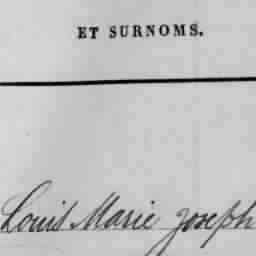 ET SURNOMS.
Louis Marie Joseph